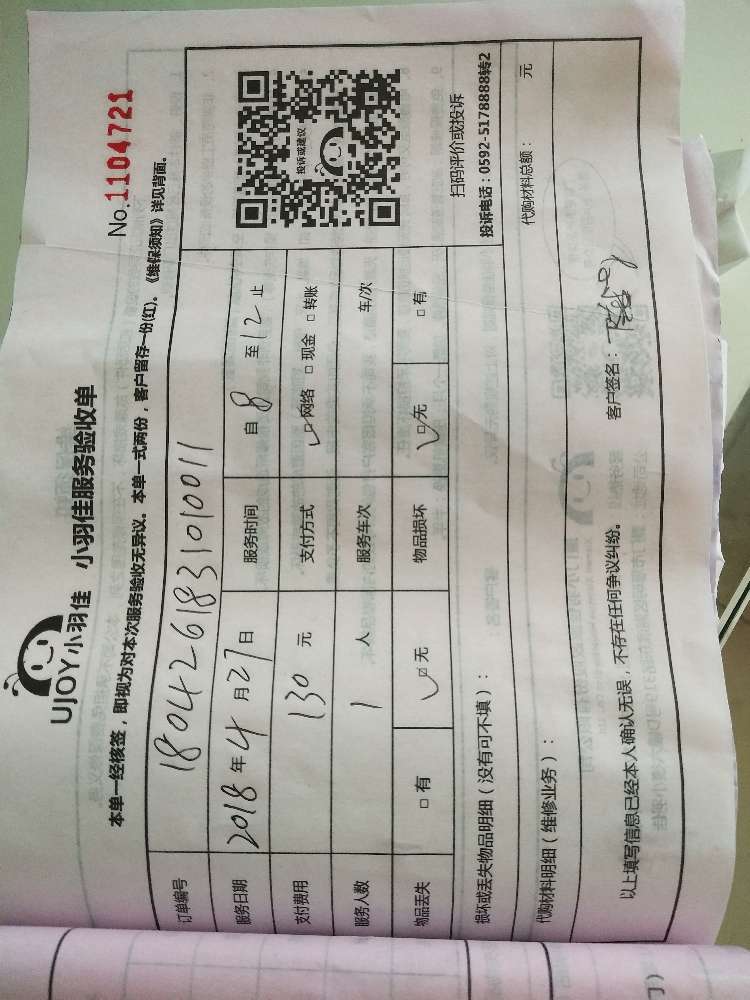 UJOY小羽佳 小羽佳服务验收单
No.1104721
本单一经核签，即视为对本次服务验收无异议。本单一式两份，客户留存一份(红)。《维保须知》详见背面。
订单编号 1804261831010011
服务日期 2018年4月27日 服务时间 自8至12止
支付费用 130元 支付方式 ☑网络 □现金 □转账
服务人数 1人 服务车次 车/次
物品丢失 □有 ☑无 物品损坏 ☑无 □有
投诉或建议
扫码评价或投诉
投诉电话：0592-5178888转2
损坏或丢失物品明细（没有可不填）：
代购材料明细（维修业务）： 代购材料总额： 元
以上填写信息已经本人确认无误，不存在任何争议纠纷。 客户签名：